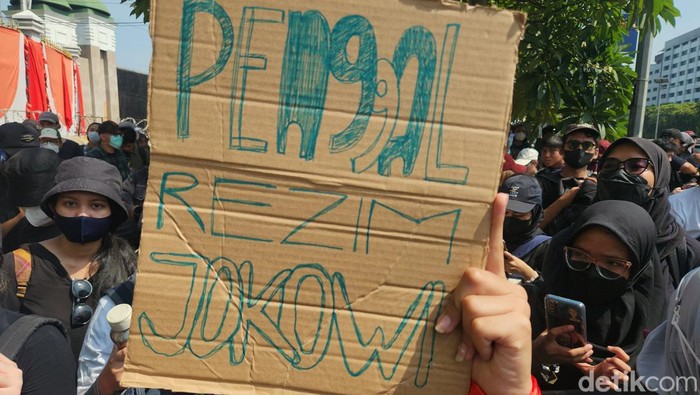 PENGGAL
REZIM
JOKOWI
detikcom